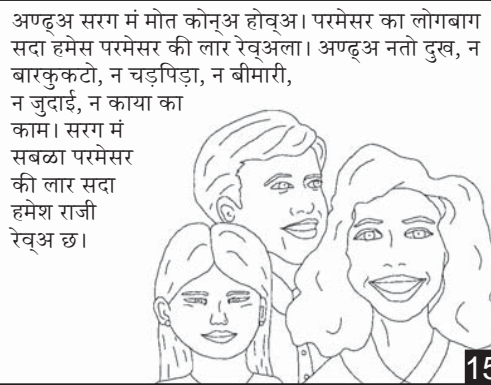 अण्ढ्अ सरग मं मोत कोन्अ होव्अ। परमेसर का लोगबाग
सदा हमेस परमेसर की लार रेव्अला। अण्ढ्अ नतो दुख, न
बारकुकटो, न चड़पिड़ा, न बीमारी,
न जुदाई, न काया का
काम। सरग मं
सबळा परमेसर
की लार सदा
हमेश राजी
रेव्अ छ।
15